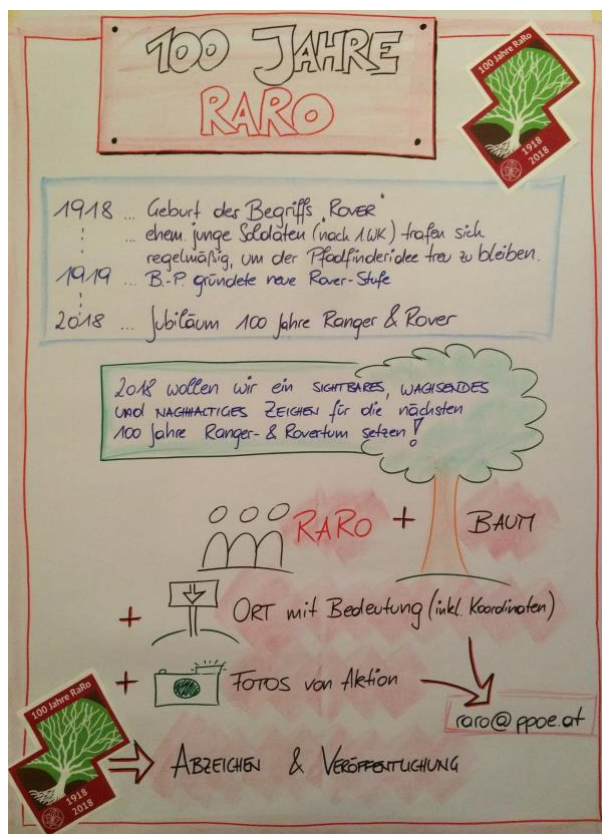 100 JAHRE
RARO
100 Jahre RaRo
1918
2018
1918 ... Geburt des Begriffs „ROVER"
... ehem. junge Soldaten (nach 1.WK) trafen sich
regelmäßig, um der Pfadfinderidee treu zu bleiben.
1919 ... B.-P. gründete neue Rover-Stufe
2018 ... Jubiläum 100 Jahre Ranger & Rover
2018 wollen wir ein SICHTBARES, WACHSENDES
UND NACHHALTIGES ZEICHEN für die nächsten
100 Jahre Ranger- & Rovertum setzen!
RARO + BAUM
+ ORT mit Bedeutung (inkl. Koordinaten)
+ FOTOS von Aktion
raro@ppoe.at
100 Jahre RaRo
1918
2018
ABZEICHEN & VERÖFFENTLICHUNG